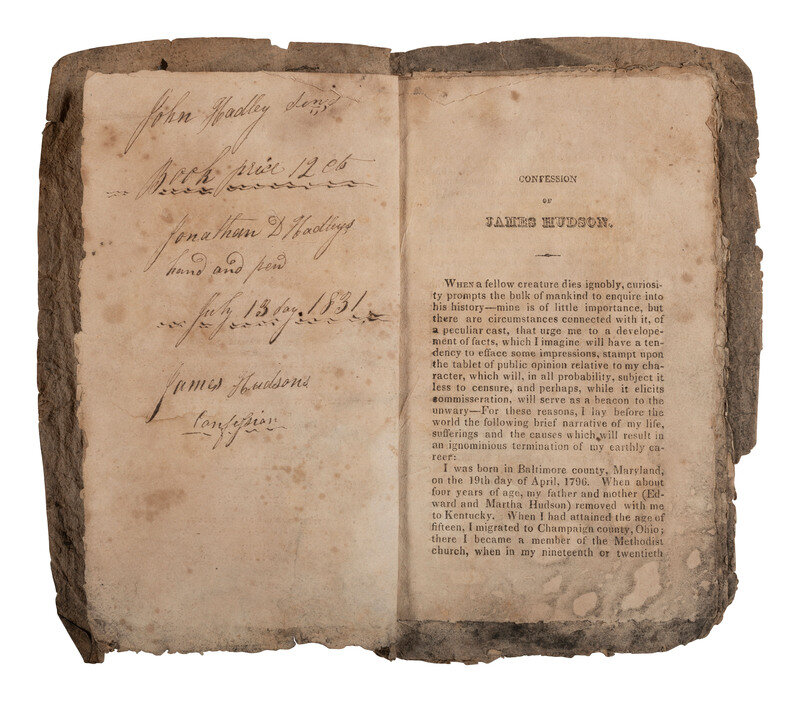 John Hadley Senr
Book price 12 cts
Jonathan D Hadleys
hand and pen
July 13 day 1831
James Hudsons
Confession
CONFESSION
OF
JAMES HUDSON.
WHEN a fellow creature dies ignobly, curiosi-
ty prompts the bulk of mankind to enquire into
his history—mine is of little importance, but
there are circumstances connected with it, of
a peculiar cast, that urge me to a develope-
ment of facts, which I imagine will have a ten-
dency to efface some impressions, stampt upon
the tablet of public opinion relative to my cha-
racter, which will, in all probability, subject it
less to censure, and perhaps, while it elicits
commisseration, will serve as a beacon to the
unwary—For these reasons, I lay before the
world the following brief narrative of my life,
sufferings and the causes which will result in
an ignominious termination of my earthly ca-
reer:
I was born in Baltimore county, Maryland,
on the 19th day of April, 1796. When about
four years of age, my father and mother (Ed-
ward and Martha Hudson) removed with me
to Kentucky. When I had attained the age of
fifteen, I migrated to Champaign county, Ohio;
there I became a member of the Methodist
church, when in my nineteenth or twentieth